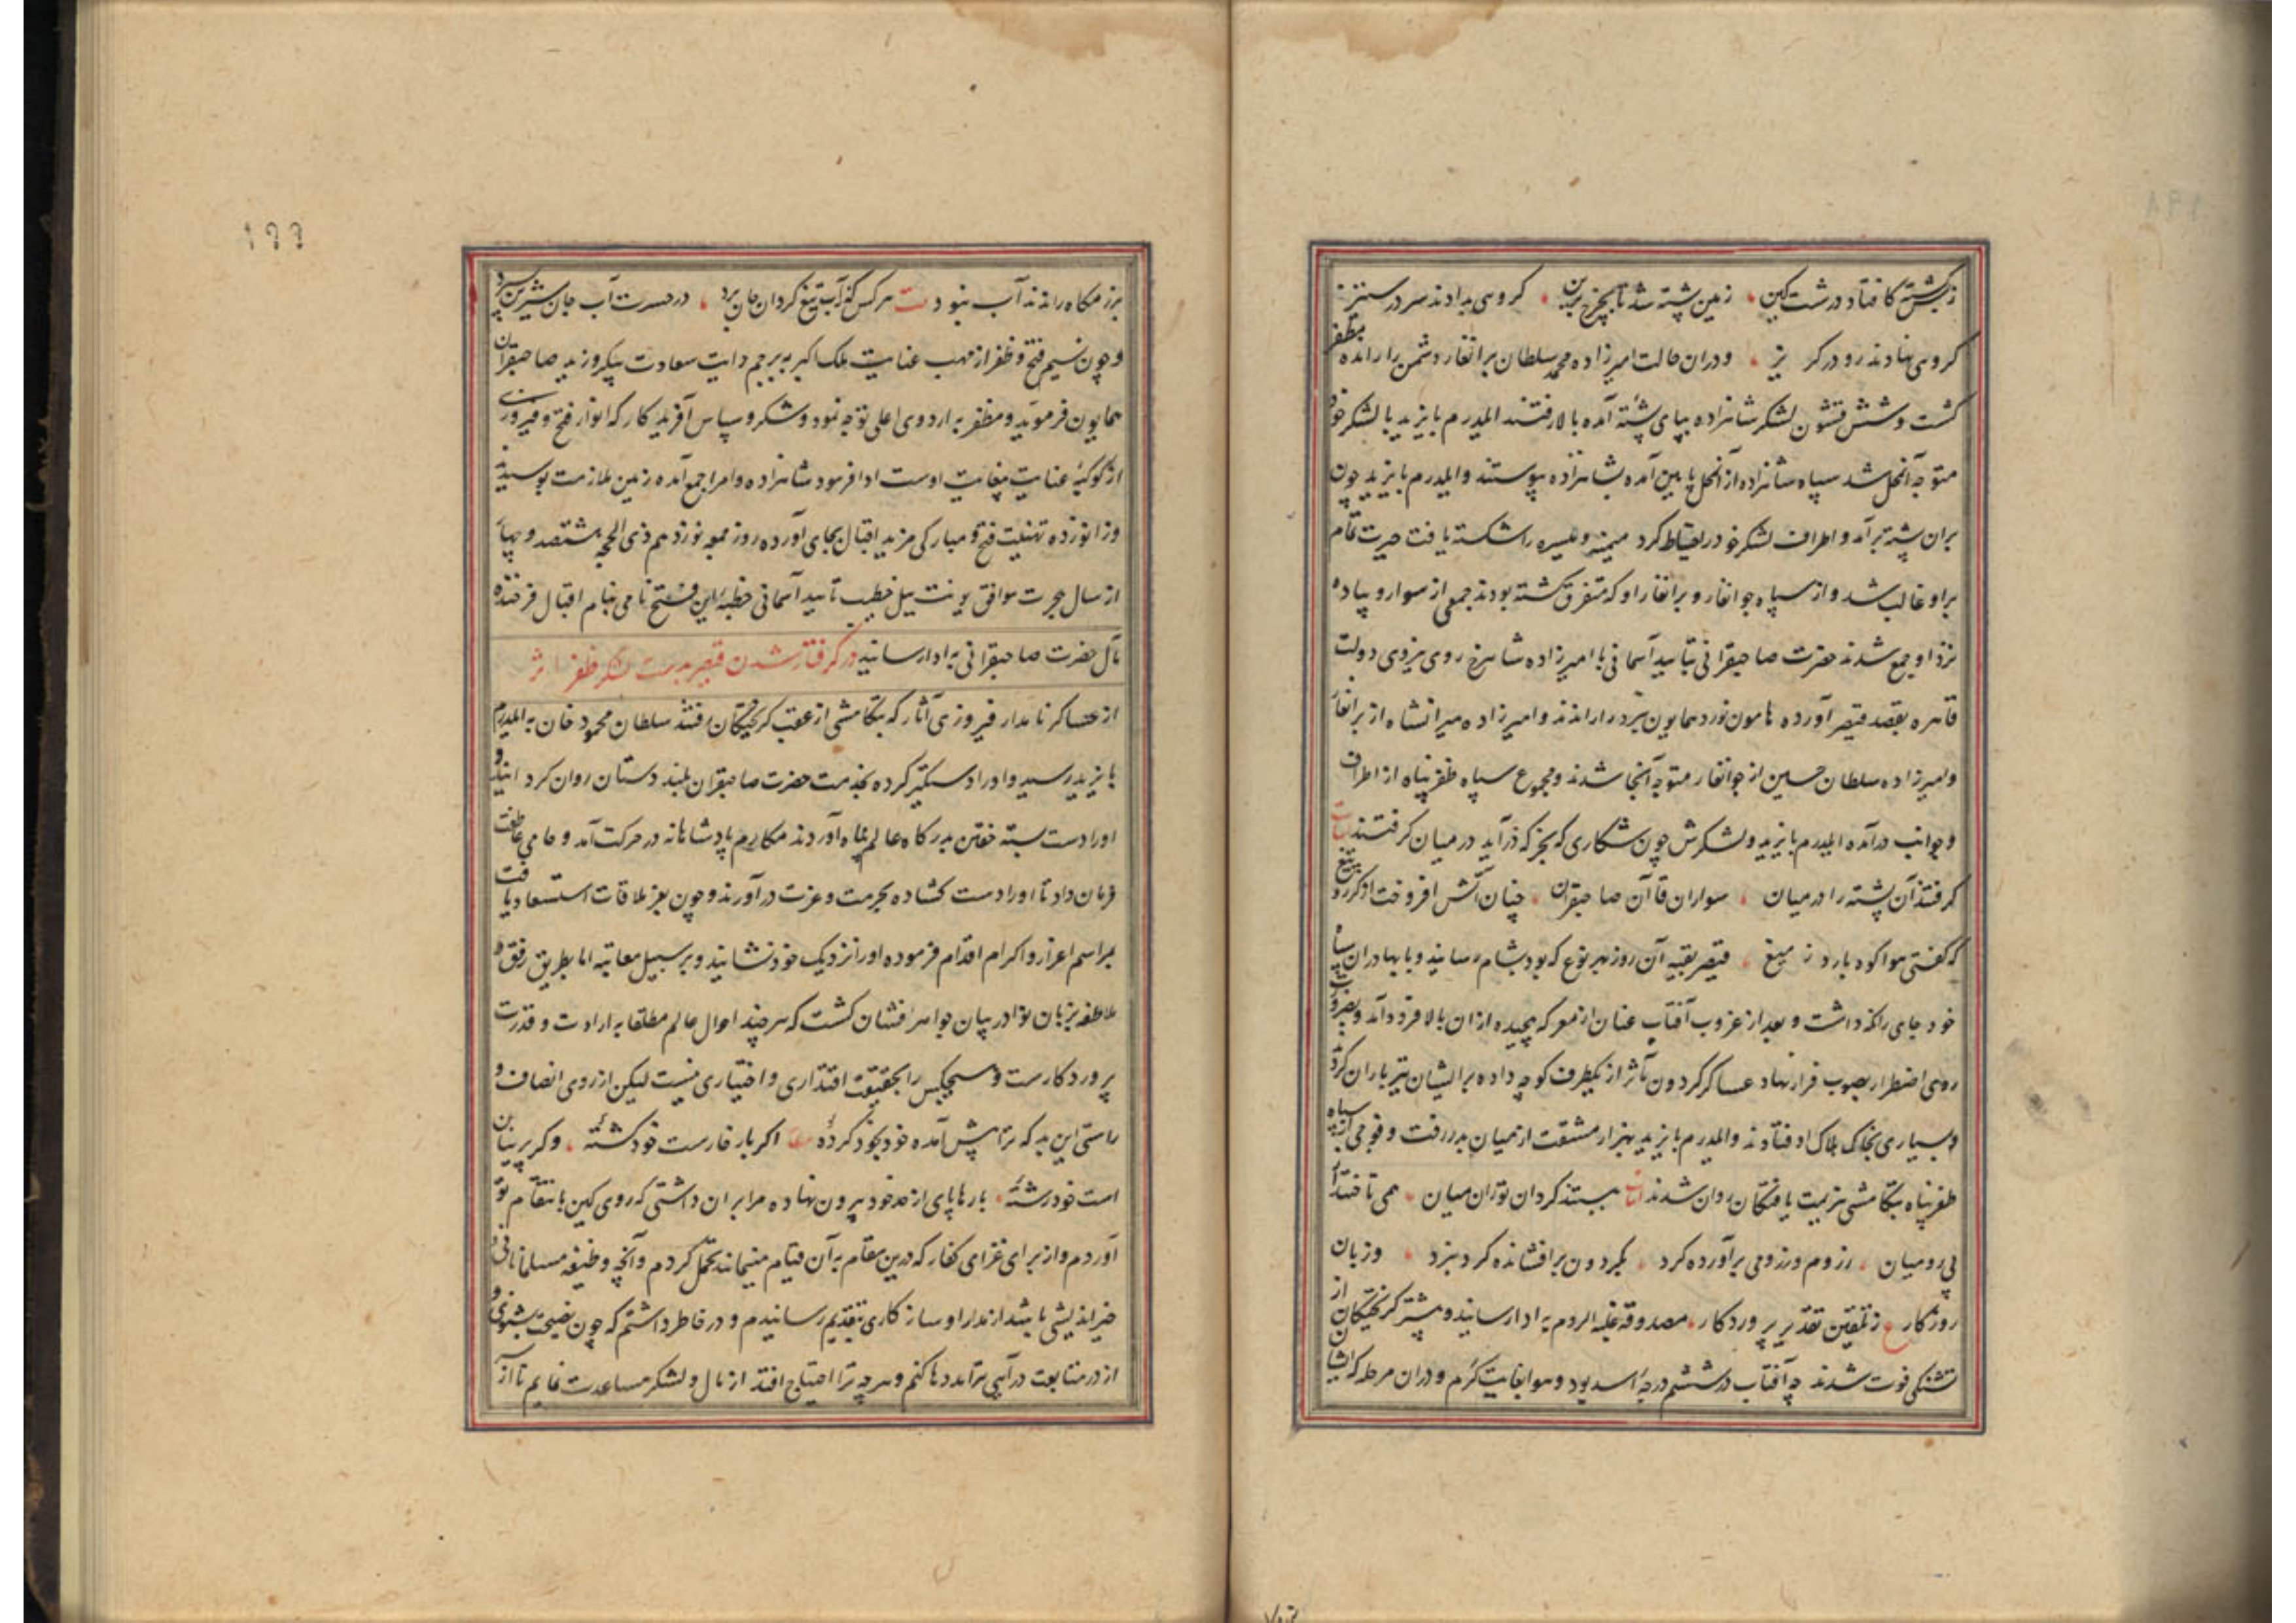 ز بس کشته کافتاد در دشت کین زمین پشته شد تا بچرخ برین گروهی بدادند سر در ستیز
گروهی نهادند رو در گریز و دران حالت امیرزاده محمد سلطان برانغار دشمن را رانده مظفر
گشت و شش قشون لشکر شاهزاده بپای پشته آمده بالا رفتند ایلدرم بایزید با لشکر خود
متوجه آنمحل شد سپاه شاهزاده از آنمحل پایین آمده بشاهزاده پیوستند و ایلدرم بایزید چون
بران پشته برآمد و اطراف لشکر خود را احتیاط کرد میمنه و میسره را شکسته یافت حیرت تمام
برو غالب شد و از سپاه جوانغار و برانغار او که متفرق گشته بودند جمعی از سوار و پیاده
نزد او جمع شدند حضرت صاحبقرانی بتایید آسمانی با امیرزاده شاهرخ روی نیروی دولت
قاهره بقصد قیصر آورده هامون نورد همایون نبرد را راندند و امیرزاده میرانشاه از برانغار
و امیرزاده سلطان حسین از جوانغار متوجه آنجا شدند و مجموع سپاه ظفر پناه از اطراف
و جوانب درآمده ایلدرم بایزید و لشکرش چون شکاری که بجرکه درآید در میان گرفتند
گرفتند آن پشته را در میان سواران قاآن صاحبقران چنان آتش افروخت از گرد تیغ
که گفتی هوا کوه بارد ز میغ قیصر بقیه آن روز بهر نوع که بود بشام رسانید و با بهادران سپاه
خود جای را نگه داشت و بعد از غروب آفتاب عنان از معرکه پیچیده از آن بالا فرود آمد و بضرورت
روی اضطرار بصوب فرار نهاد عساکر گردون مآثر از یکطرف کوچه داده بر ایشان تیرباران کردند
و بسیاری بخاک هلاک افتادند و ایلدرم بایزید بهزار مشقت از میان بدر رفت و فوجی از سپاه
ظفر پناه بتکامشی هزیمت یافتگان روان شدند ببستند گردان توران میان همی تاختند از
پی رومیان ز روم و ز رومی برآورده گرد بگردون برافشانده گرد نبرد و زبان
روزگار ز تلقین تقدیر پروردگار مصدوقه غلبة الروم به ادا رسانید و بیشتر گریختگان از
تشنگی فوت شدند چه آفتاب در ششم درجه اسد بود و هوا بغایت گرم و در آن مرحله که ایشان
برزمگاه راندند آب نبود هر کس که ز آب تیغ گردان جان برد در حسرت آب جان شیرین بسپرد
و چون نسیم فتح و ظفر از مهب عنایت ملک اکبر به پرچم رایت سعادت پیکر وزید صاحبقران
همایون فر موید و مظفر به اردوی اعلی توجه نمود و شکر و سپاس آفریدگار که انوار فتح و فیروزی
از کوکبه عنایت بیغایت اوست ادا فرمود شاهزاده و امرا جمع آمده زمین ملازمت بوسیدند
و زانو زده تهنیت فتح و مبارکی مزید اقبال بجای آورده روز جمعه نوزدهم ذی الحجه هشتصد و چهار
از سال هجرت موافق یونت ییل خطیب تایید آسمانی خطبه این فتح نامی بنام اقبال فرخنده
مآل حضرت صاحبقرانی به ادا رسانید در گرفتار شدن قیصر بدست لشکر ظفر اثر
از عساکر نامدار فیروزی آثار که بتکامشی از عقب گریختگان رفتند سلطان محمود خان به ایلدرم
بایزید رسید و او را دستگیر کرده بخدمت حضرت صاحبقران بلند دستان روان کرد
او را دست بسته خفتن بدرگاه عالم پناه آوردند مکارم پادشاهانه در حرکت آمد و حامی عاطفت
فرمان داد تا او را دست گشاده بحرمت و عزت درآورند و چون بعز ملاقات استسعاد یافت
بمراسم اعزاز و اکرام اقدام فرموده او را نزدیک خود نشانید و بر سبیل معاتبه اما بطریق رفق و
ملاطفه بزبان نوادر بیان جواهر افشان گشت که هر چند احوال عالم مطلقا به ارادت و قدرت
پروردگارست و هیچکس را بحقیقت اقتداری و اختیاری نیست لیکن از روی انصاف و
راستی این بد که ترا پیش آمده خود بخود کرده اگر بار خارست خود کشته و گر پرنیان
است خود رشته بارها پای از حد خود بیرون نهاده مرا بر آن داشتی که روی کین بانتقام تو
آوردم و از برای غزای کفار که درین مقام به آن قیام مینمایند تحمل کردم و آنچه وظیفه مسلمانانی و
خیر اندیشی باشد از مدارا و سازکاری بتقدیم رسانیدم و در خاطر داشتم که چون نصیحت بشنوی و
از در متابعت درآیی ترا مددها کنم و هر چه ترا احتیاج افتد از مال و لشکر مساعدت نمایم تا از